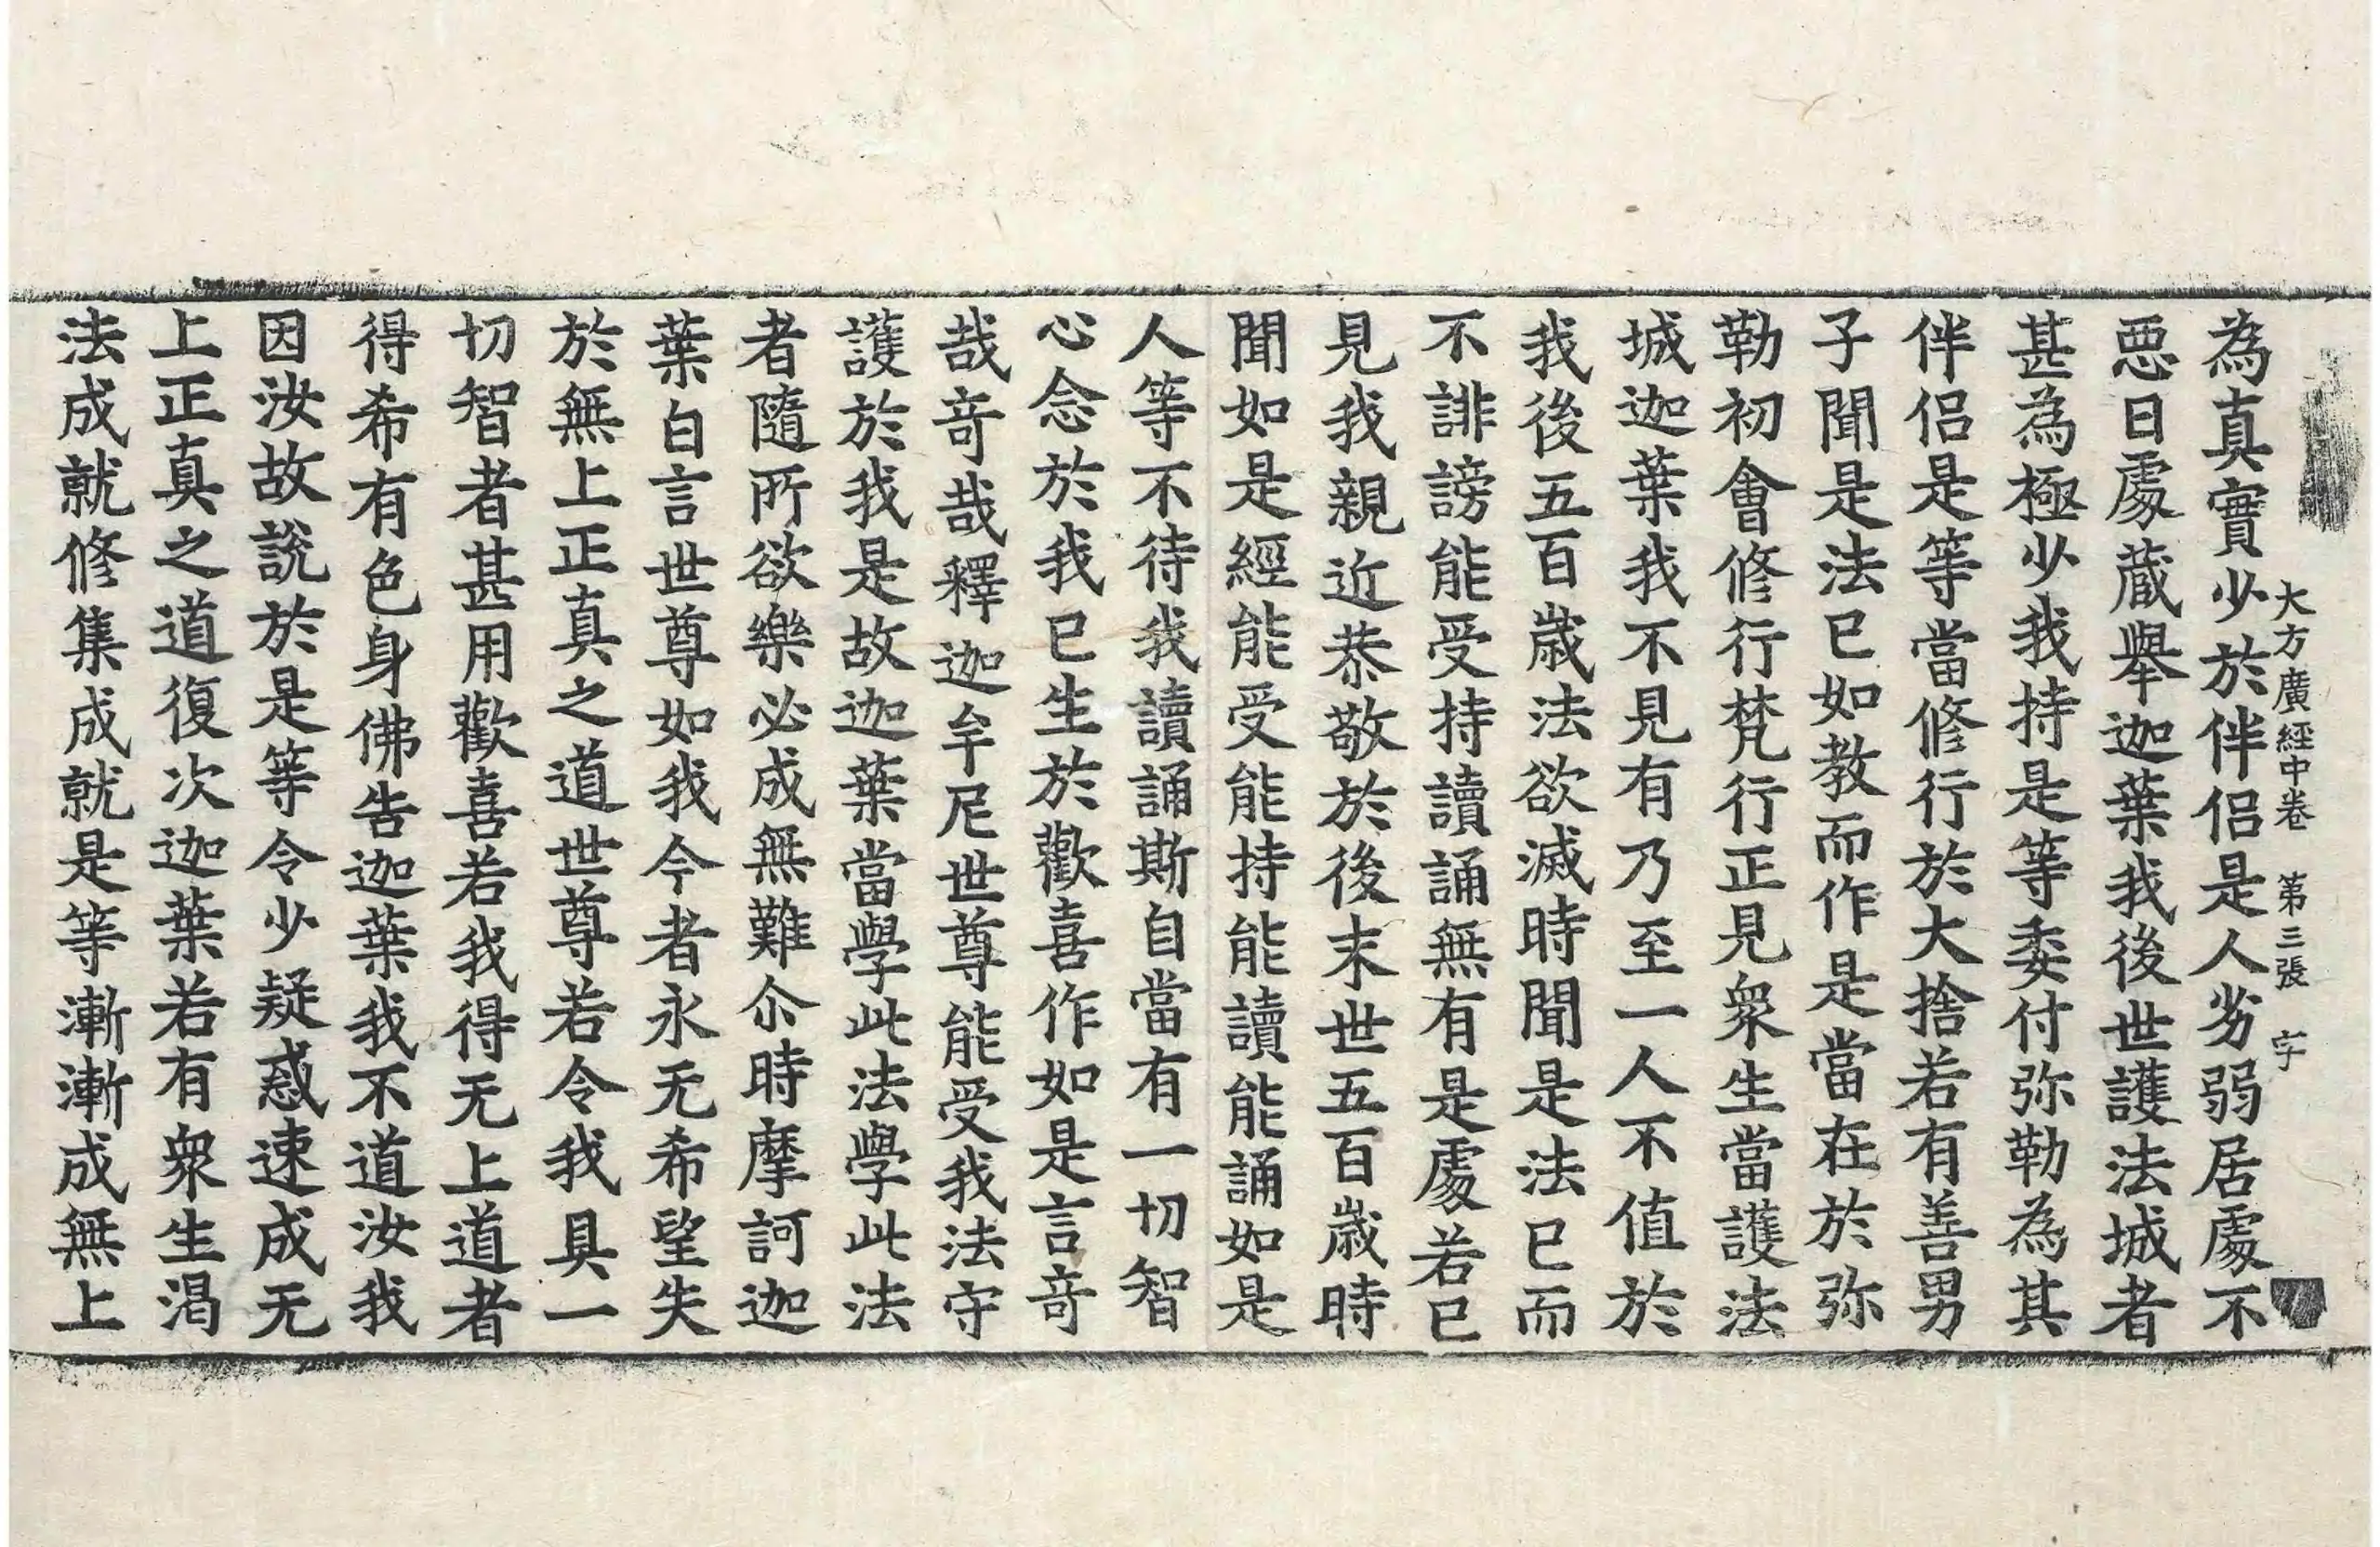 大方廣經中卷 第三張 字
為真實少於伴侶是人劣弱居處不
惡日處藏舉迦葉我後世護法城者
甚為極少我持是等委付弥勒為其
伴侶是等當修行於大捨若有善男
子聞是法已如教而作是當在於弥
勒初會修行梵行正見衆生當護法
城迦葉我不見有乃至一人不值於
我後五百歲法欲滅時聞是法已而
不誹謗能受持讀誦無有是處若已
見我親近恭敬於後末世五百歲時
聞如是經能受能持能讀能誦如是
人等不待我讀誦斯自當有一切智
心念於我已生於歡喜作如是言奇
哉奇哉釋迦牟尼世尊能受我法守
護於我是故迦葉當學此法學此法
者隨所欲樂必成無難尒時摩訶迦
葉白言世尊如我今者永无希望失
於無上正真之道世尊若令我具一
切智者甚用歡喜若我得无上道者
得希有色身佛告迦葉我不道汝我
因汝故說於是等令少疑惑速成无
上正真之道復次迦葉若有衆生渴
法成就修集成就是等漸漸成無上